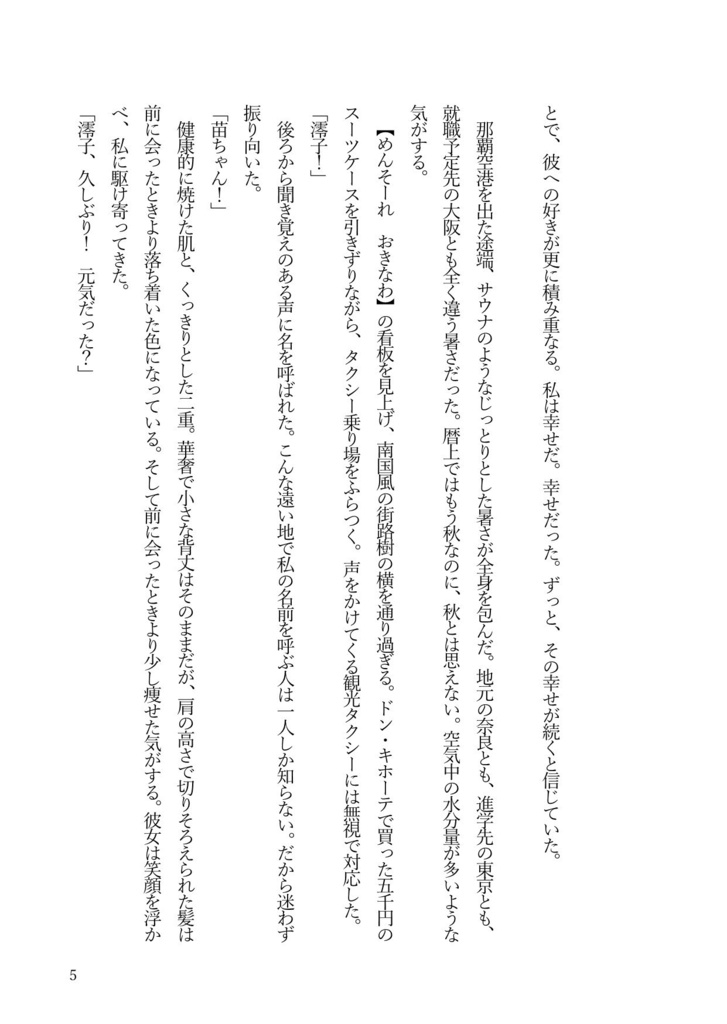 とで、彼への好きが更に積み重なる。私は幸せだ。幸せだった。ずっと、その幸せが続くと信じていた。
那覇空港を出た途端、サウナのようなじっとりとした暑さが全身を包んだ。地元の奈良とも、進学先の東京とも、
就職予定先の大阪とも全く違う暑さだった。暦上ではもう秋なのに、秋とは思えない。空気中の水分量が多いような
気がする。
【めんそーれ　おきなわ】の看板を見上げ、南国風の街路樹の横を通り過ぎる。ドン・キホーテで買った五千円の
スーツケースを引きずりながら、タクシー乗り場をふらつく。声をかけてくる観光タクシーには無視で対応した。
「澪子！」
後ろから聞き覚えのある声に名を呼ばれた。こんな遠い地で私の名前を呼ぶ人は一人しか知らない。だから迷わず
振り向いた。
「苗ちゃん！」
健康的に焼けた肌と、くっきりとした二重。華奢で小さな背丈はそのままだが、肩の高さで切りそろえられた髪は
前に会ったときより落ち着いた色になっている。そして前に会ったときより少し痩せた気がする。彼女は笑顔を浮か
べ、私に駆け寄ってきた。
「澪子、久しぶり！　元気だった？」
5